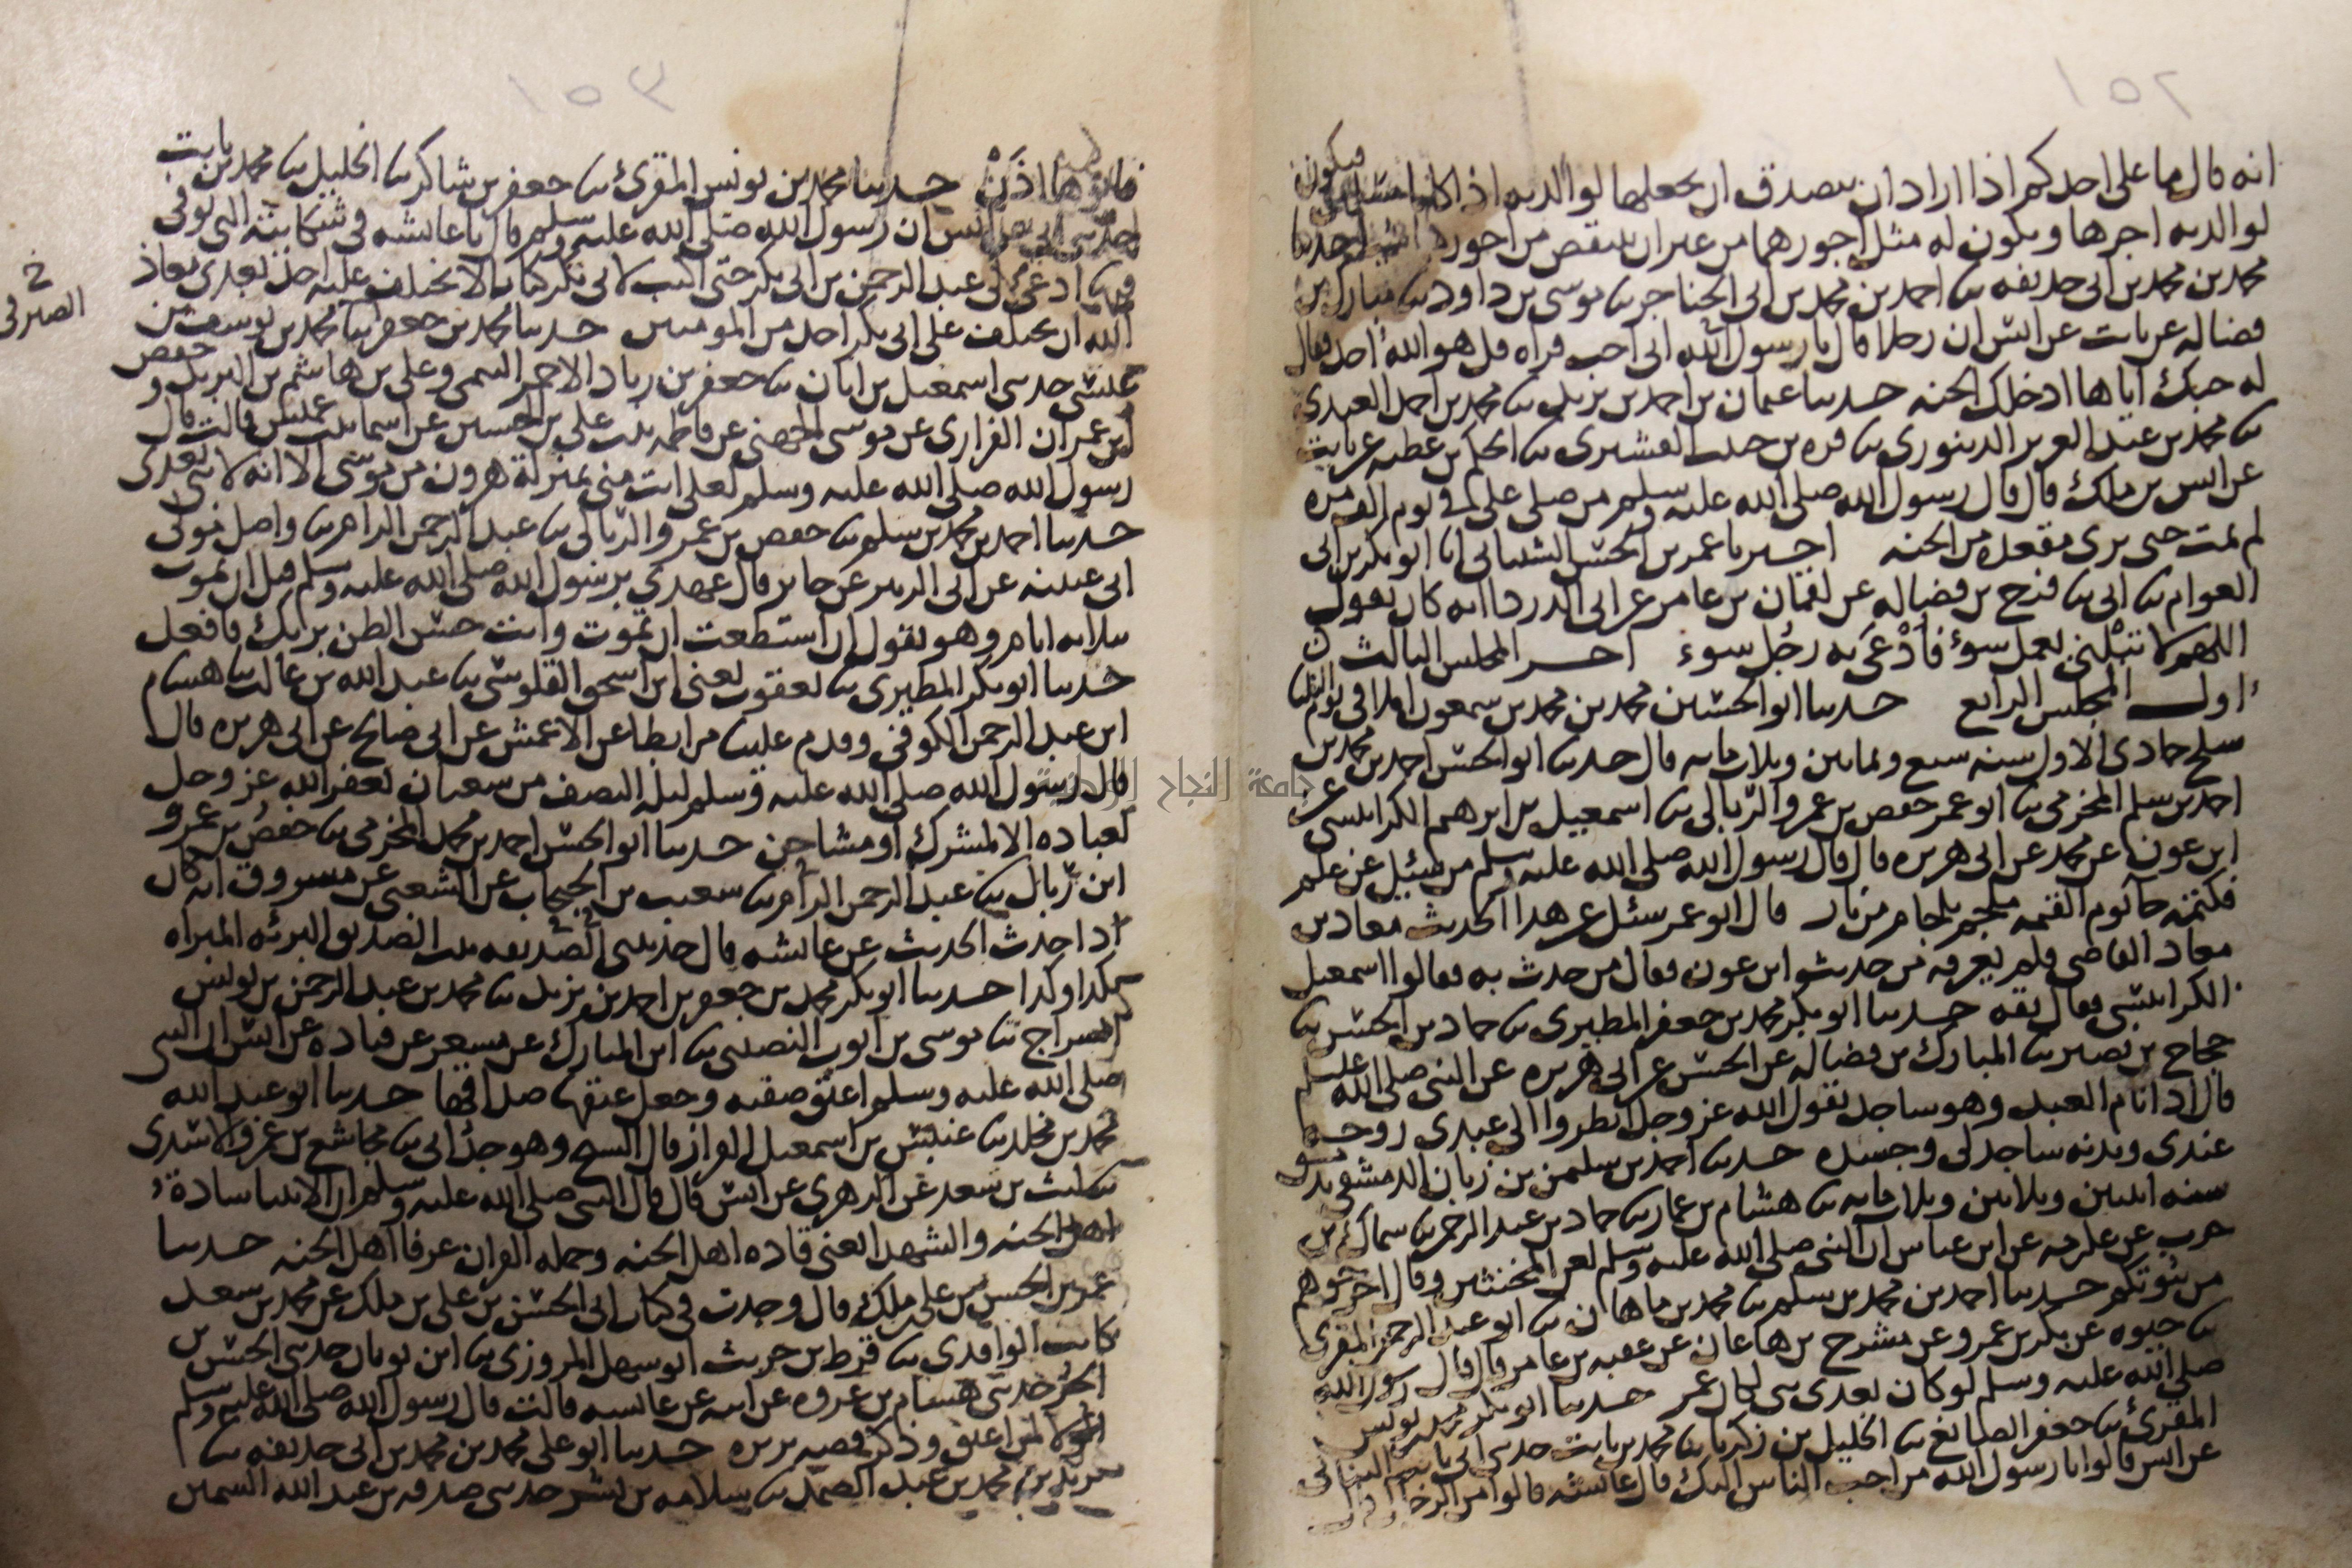 ١٥٢
انه قال ما على احدكم اذا اراد ان يتصدق ان يجعلها لوالديه اذا كانا مسلمين فيكون
لوالديه اجرها ويكون له مثل اجورهما من غير ان ينقص من اجورهما شيا حدثنا
محمد بن محمد بن ابي حذيفه ثنا احمد بن محمد بن ابي الحناجر ثنا موسى بن داود ثنا مبارك بن
فضاله عن ثابت عن انس ان رجلا قال يا رسول الله اني احب قراه قل هو الله احد فقال
له حبك اياها ادخلك الجنه حدثنا عثمان بن احمد بن يزيد ثنا محمد بن احمد العبدي
ثنا محمد بن عبد العزيز الدينوري ثنا قره بن حبيب القشيري ثنا الحكم بن عطيه عن ثابت
عن انس بن ملك قال قال رسول الله صلى الله عليه وسلم من صلى علي في يوم الف مره
لم يمت حتى يرى مقعده من الجنه اخبرنا عمر بن الحسن الشيباني انا ابو بكر بن ابي
العوام ثنا ابي ثنا فرج بن فضاله عن لقمان بن عامر عن ابي الدردا انه كان يقول
اللهم لا تبتلني بعمل سوء فأدعى به رجل سوء اخر المجلس الثالث
اول المجلس الرابع حدثنا ابو الحسين محمد بن محمد بن سمعون املا في يوم الثلثا
سلخ جمادى الاول سنه سبع وثمانين وثلاث مايه قال حدثنا ابو الحسن احمد بن محمد بن
احمد بن سلم المخرمي ثنا ابو عمر حفص بن عمرو الربالي ثنا اسمعيل بن ابرهيم الكرابيسي عن
ابن عون عن محمد عن ابي هريره قال قال رسول الله صلى الله عليه وسلم من سئل عن علم
فكتمه جا يوم القيمه ملجم بلجام من نار قال ابو عمر سئل عن هذا الحديث معاذ بن
معاذ القاضي فلم يعرفه من حديث ابن عون فقال من حدث به فقالوا اسمعيل
الكرابيسي فقال ثقه حدثنا ابو بكر محمد بن جعفر المطيري ثنا حماد بن الحسن ثنا
حجاج بن نصير ثنا المبارك بن فضاله عن الحسن عن ابي هريره عن النبي صلى الله عليه وسلم
قال اذا نام العبد وهو ساجد يقول الله عز وجل انظروا الى عبدي روحه
عندي وبدنه ساجد لي وجسده حدثنا احمد بن سليمن بن زبان الدمشقي بدمشق
سنه اثنين وثلاثين وثلاث مايه ثنا هشام بن عمار ثنا حماد بن عبد الرحمن ثنا سماك بن
حرب عن عكرمه عن ابن عباس ان النبي صلى الله عليه وسلم لعن المخنثين وقال اخرجوهم
من بيوتكم حدثنا احمد بن محمد بن سلم ثنا محمد بن ماهان ثنا ابو عبد الرحمن المقرئ
ثنا حيوه عن بكر بن عمرو عن مشرح بن هاعان عن عقبه بن عامر قال قال رسول الله
صلى الله عليه وسلم لو كان بعدي نبي لكان عمر حدثنا ابو بكر محمد بن يونس
المقرئ ثنا جعفر الصايغ ثنا الخليل بن زكريا ثنا محمد بن ثابت حدثني ابي ثابت البناني
عن انس قالوا يا رسول الله من احب الناس اليك قال عائشه قالوا من الرجال قال
١٥٣
فابوها اذن حدثنا محمد بن يونس المقرئ ثنا جعفر بن شاكر ثنا الخليل ثنا محمد بن ثابت
حدثني ابي عن انس ان رسول الله صلى الله عليه وسلم قال يا عائشه في شكايته التي توفي
فيها ادعي لي عبد الرحمن بن ابي بكر حتى اكتب لابي بكر كتابا لا يختلف عليه احد بعدي معاذ
الله ان يختلف على ابي بكر احد من المومنين حدثنا محمد بن جعفر ثنا محمد بن يوسف بن
عيسى حدثني اسمعيل بن ابان ثنا جعفر بن زياد الاحمر التيمي وعلي بن هاشم بن البريد و حفص
ابن عمران الفزاري عن موسى الجهني عن فاطمه بنت علي بن الحسين عن اسما بنت عميس قالت قال
رسول الله صلى الله عليه وسلم لعلي انت مني بمنزلة هرون من موسى الا انه لا نبي بعدي
حدثنا احمد بن محمد بن سلم ثنا حفص بن عمرو الربالي ثنا عبد الرحمن الرام ثنا واصل مولى
ابي عيينه عن ابي الزبير عن جابر قال عهدي برسول الله صلى الله عليه وسلم قبل ان يموت
بثلاثه ايام وهو يقول ان استطعت ان تموت وانت حسن الظن بربك فافعل
حدثنا ابو بكر المطيري ثنا يعقوب يعني ابن اسحق القلوسي ثنا عبد الله بن غالب ثنا هشام
ابن عبد الرحمن الكوفي وقدم علينا مرابطا عن الاعمش عن ابي صالح عن ابي هريره قال
قال رسول الله صلى الله عليه وسلم ليله النصف من شعبان يغفر الله عز وجل
لعباده الا لمشرك او مشاحن حدثنا ابو الحسن احمد بن محمد المخرمي ثنا حفص بن عمرو
ابن ربال ثنا عبد الرحمن الرام ثنا شعيب بن الحبحاب عن الشعبي عن مسروق انه كان
اذا حدث الحديث عن عائشه قال حدثتني الصديقه بنت الصديق البريه المبراه
بكذا وكذا حدثنا ابو بكر محمد بن جعفر بن احمد بن يزيد ثنا محمد بن عبد الرحمن بن يونس
السراج ثنا موسى بن ايوب النصيبي ثنا ابن المبارك عن مسعر عن قتاده عن انس ان النبي
صلى الله عليه وسلم اعتق صفيه وجعل عتقها صداقها حدثنا ابو عبد الله
محمد بن مخلد ثنا عنبس بن اسمعيل القزاز قال الشيخ وهو جد ابي ثنا مجاشع بن عمرو الاسدي
ثنا ليث بن سعد عن الزهري عن انس قال قال النبي صلى الله عليه وسلم ان الانبيا سادة
اهل الجنه والشهدا يعني قاده اهل الجنه وحمله القران عرفا اهل الجنه حدثنا
عمر بن الحسن بن علي بن ملك قال وجدت في كتاب ابي الحسن بن علي بن ملك عن محمد بن سعد
كاتب الواقدي ثنا قرط بن حريث ابو سهل المروزي ثنا ابن ثوبان حدثني الحسن بن
الحر حدثني هشام بن عروه عن ابيه عن عائشه قالت قال رسول الله صلى الله عليه وسلم
الولا لمن اعتق وذكر قصه بريره حدثنا ابو علي محمد بن محمد بن ابي حذيفه ثنا
يزيد بن محمد بن عبد الصمد ثنا سلامه بن بشر حدثني صدقه بن عبد الله السمين
خ
الصيرفي
جامعة النجاح الوطنية